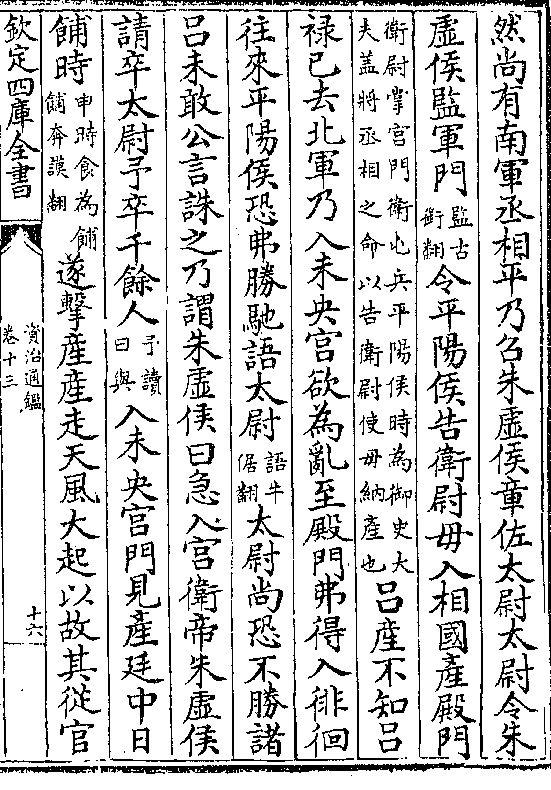 然尚有南軍丞相平乃召朱虛侯章佐太尉太尉令朱
虛侯監軍門監古銜翻令平陽侯告衛尉毋入相國產殿門
衛尉掌宮門衛屯兵平陽侯時為御史大
夫蓋將丞相之命以告衛尉使毋納產也
呂產不知呂
祿已去北軍乃入未央宮欲為亂至殿門弗得入徘徊
往來平陽侯恐弗勝馳語太尉語牛倨翻太尉尚恐不勝諸
呂未敢公言誅之乃謂朱虛侯曰急入宮衛帝朱虛侯
請卒太尉予卒千餘人予讀曰與入未央宮門見產廷中日
餔時申時食為餔餔奔謨翻遂擊產產走天風大起以故其從官
欽定四庫全書
資治通鑑
卷十三
十六